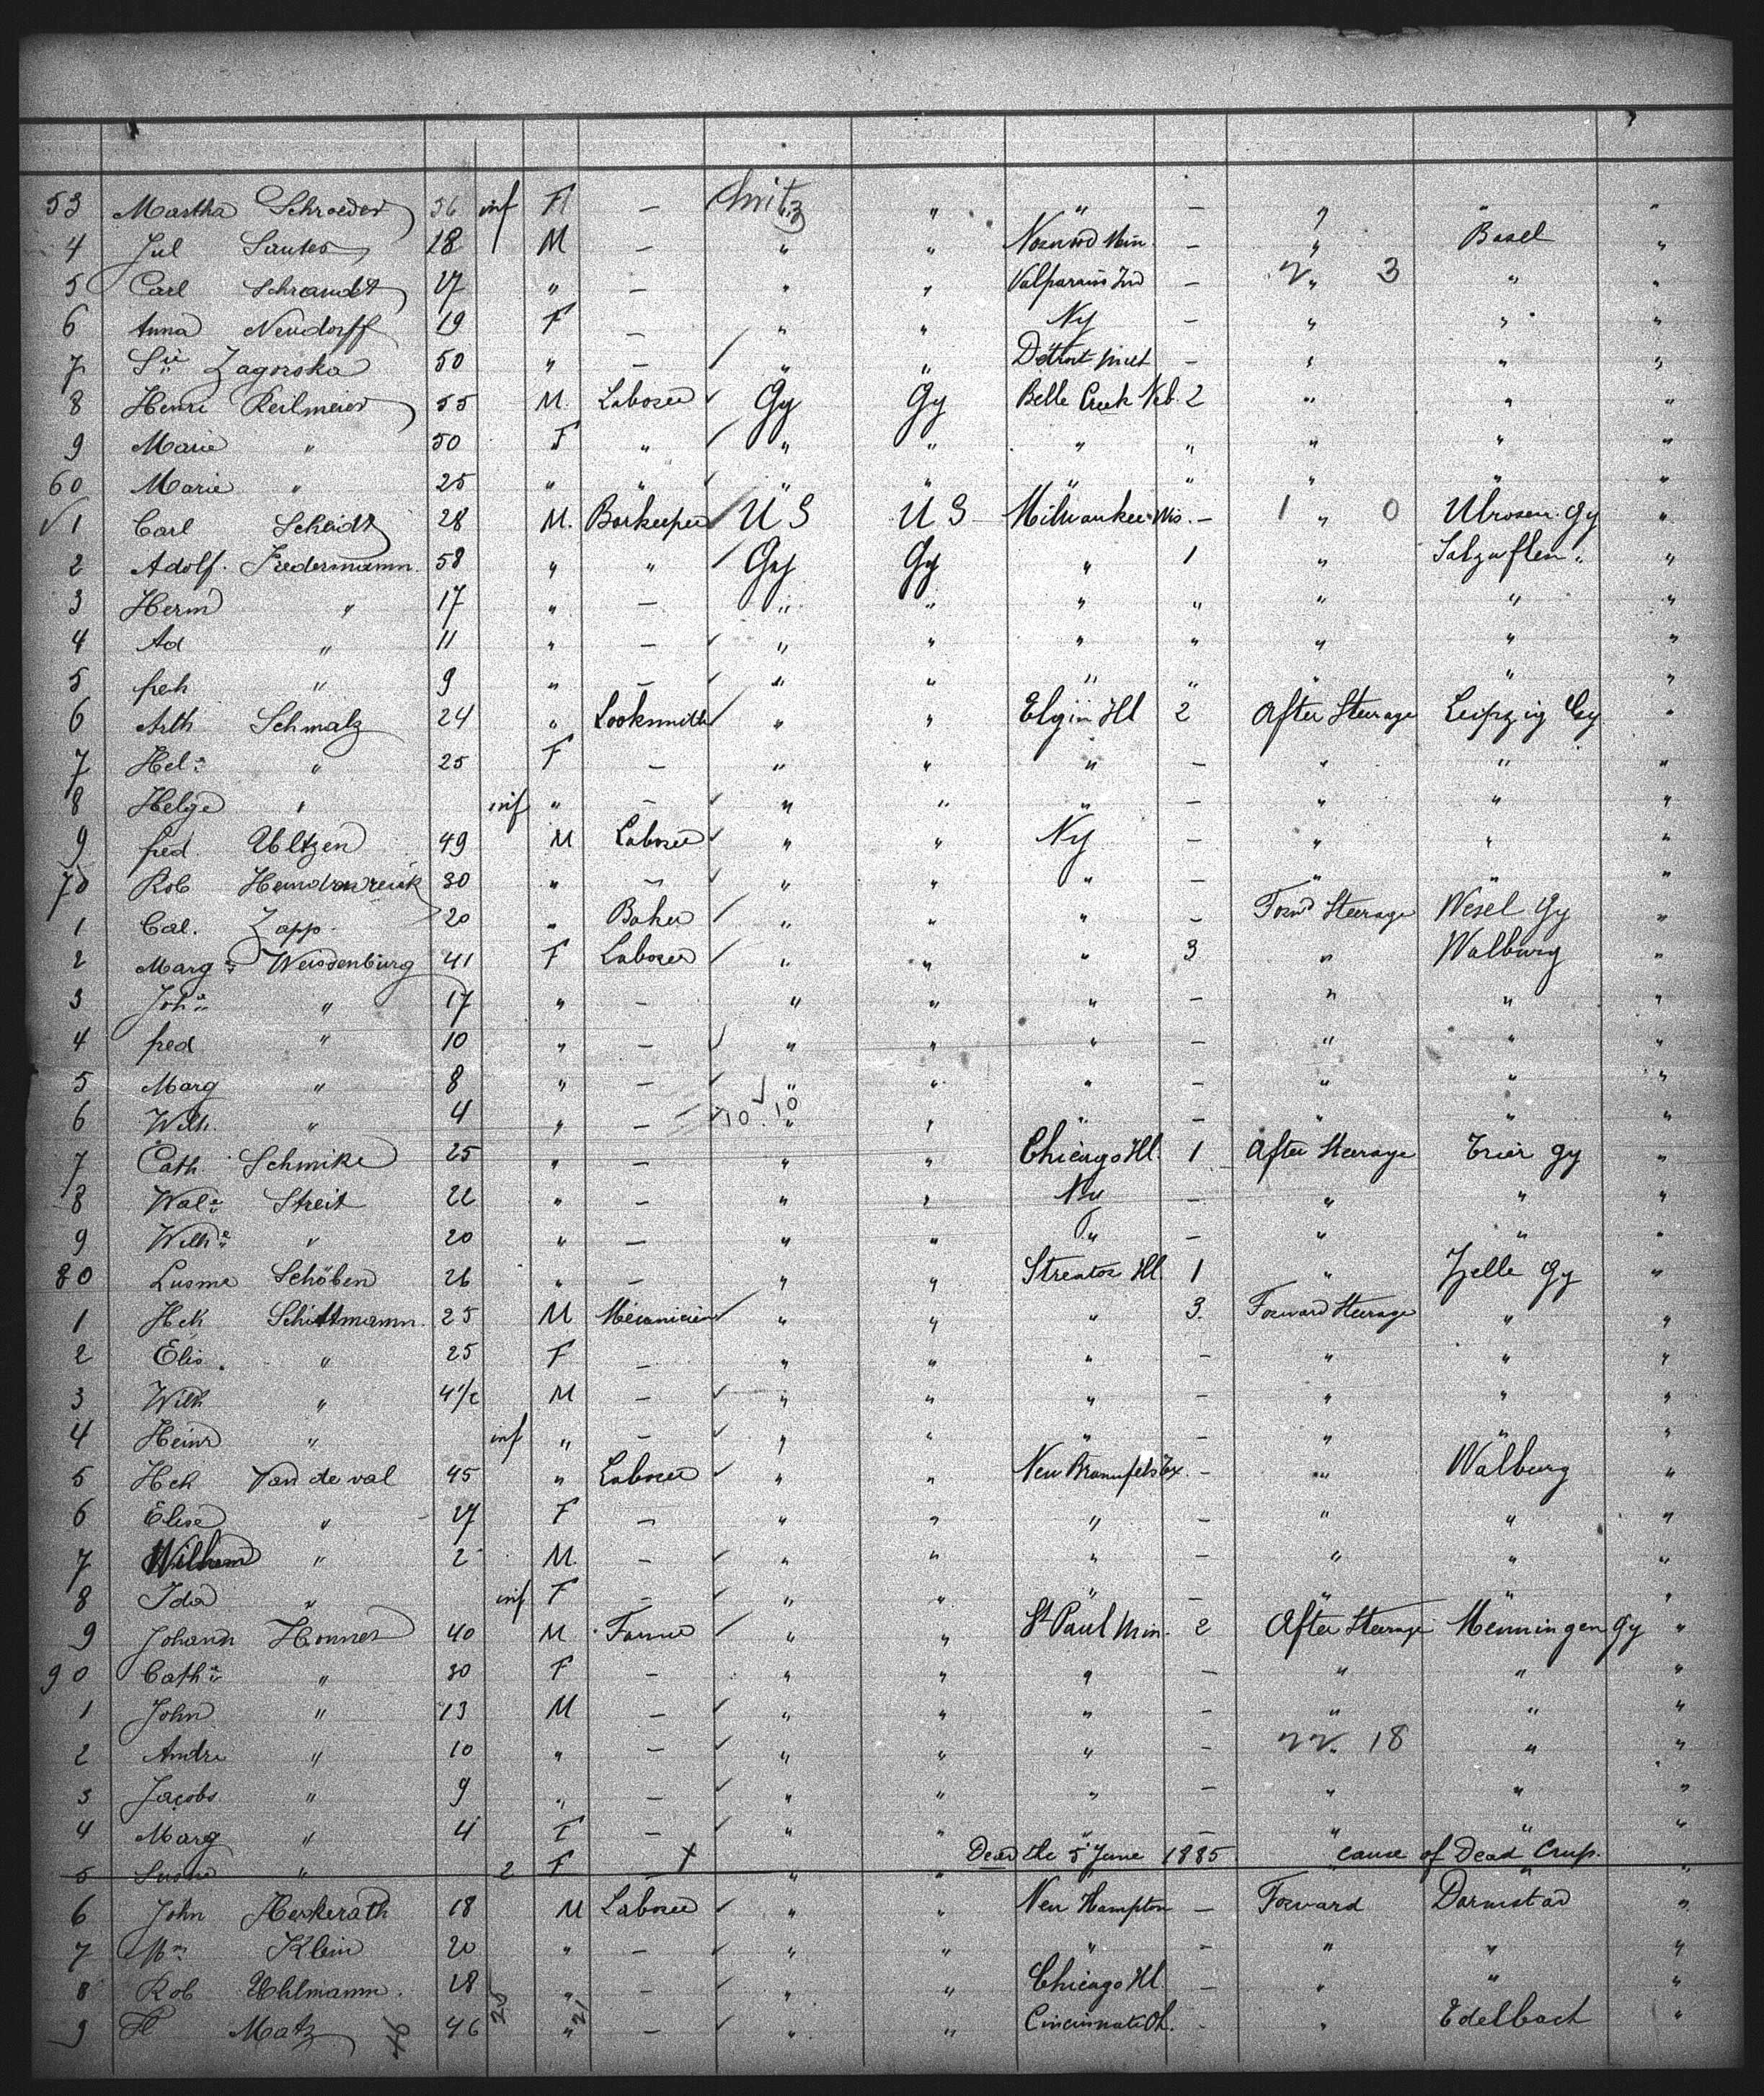 53 Martha Schroeder 56 inf F — " " — " " "
4 Jul Sauter 28 M — " " Norwood Min. — " Basel "
5 Carl Schrandt 27 " — " " Valparaiso Ind — " 3 " "
6 Anna Neudorff 19 F — " " Ny — " " "
7 Zagorska 50 " — " " Detroit Mich — " " "
8 Henri Reilmeier 55 M. Laborer Gy Gy Belle Creek Neb. 2 " " "
9 Marie " 50 F " " " " " " " "
60 Marie " 25 " " " " " " " " "
1 Carl Scheidt 28 M. Barkeeper U S U S Milwaukee Wis. — 1 " 0 Gy "
2 Adolf. Fredermann. 58 " " Gy Gy " 1 " Salzuflen "
3 Herm " 17 " — " " " " " " "
4 Ad " 11 " — " " " " " " "
5 freh " 9 " — " " " " " " "
6 Arth Schmalz 24 " Locksmith " " Elgin Ill 2 After Steerage Leipzig Gy "
7 Hel " 25 F — " " " — " " "
8 Helge " inf " — " " " — " " "
9 fred Ubltzen 49 M Laborer " " Ny — " " "
70 Rob 30 " — " " " — " " "
1 Cal. Zapp 20 " Baker " " " — Forwd Steerage Wesel Gy "
2 Marg Weissenburg 41 F Laborer " " " 3 " Walburg "
3 Joh " 17 " — " " " — " " "
4 fred " 10 " — " " " — " " "
5 Marg " 8 " — " " " — " " "
6 Wilh. " 4 " — 10 10 " " " — " " "
7 Cath Schmike 25 " — " " Chicago Ill. 1 After Steerage Trier Gy "
8 Wal Streit 22 " — " " Ny — " " "
9 Wilh " 20 " — " " " — " " "
80 Lusme Schöben 26 " — " " Streator Ill. 1 " Zelle Gy "
1 Hch Schittmann. 25 M Mecanicien " " " 3. Forward Steerage " "
2 Elis. " 25 F — " " " — " " "
3 Wilh " 4 1/2 M — " " " — " " "
4 Heinr " inf " — " " " — " " "
5 Hch Van de val 45 " Laborer " " New Braunfels Tex. — " Walburg "
6 Elise " 27 F — " " " — " " "
7 Wilhem " 2 M. — " " " — " " "
8 Ida " inf F — " " " — " " "
9 Johann Honner 40 M Farmer " " St Paul Min. 2 After Steerage Menningen Gy "
90 Cath " 30 F — " " " — " " "
1 John " 13 M — " " " — " " "
2 Andre " 10 " — " " " — 18 " "
3 Jacobs " 9 " — " " " — " " "
4 Marg " 4 F — " " " — " " "
5 Susne " 2 F — X " Dead the 5 June 1885 cause of Dead Crup. "
6 John Herkerath 18 M Laborer " " New Hampton — Forward Darmstad "
7 Klein 20 " — " " " — " " "
8 Rob Uhlmann. 28 " — " " Chicago Ill — " " "
9 Matz 46 " — " " Cincinnati Oh. — " Edelbach "
46 25 21